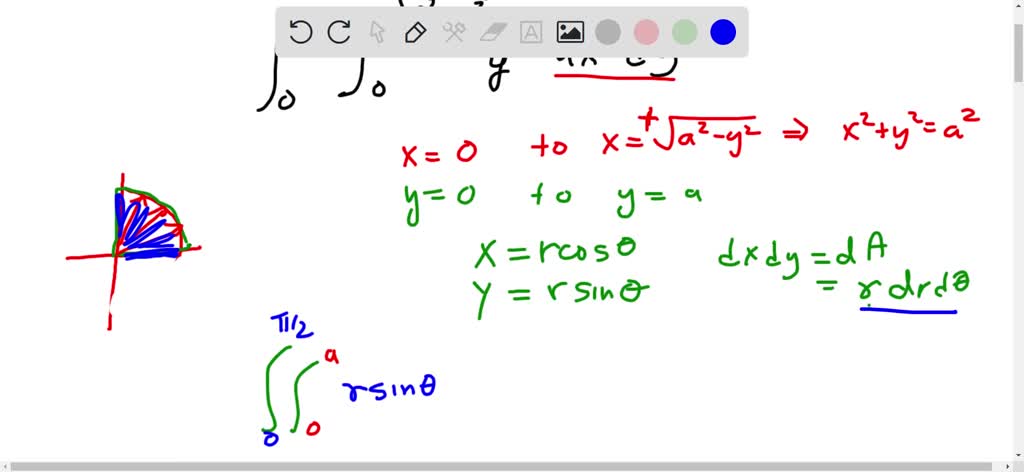 ∫₀ ∫₀ y dx dy
x = 0 to x = +√(a²−y²) ⇒ x²+y² = a²
y = 0 to y = a
x = r cos θ dx dy = dA
y = r sin θ = r dr dθ
∫₀^(π/2) ∫₀^a r sin θ